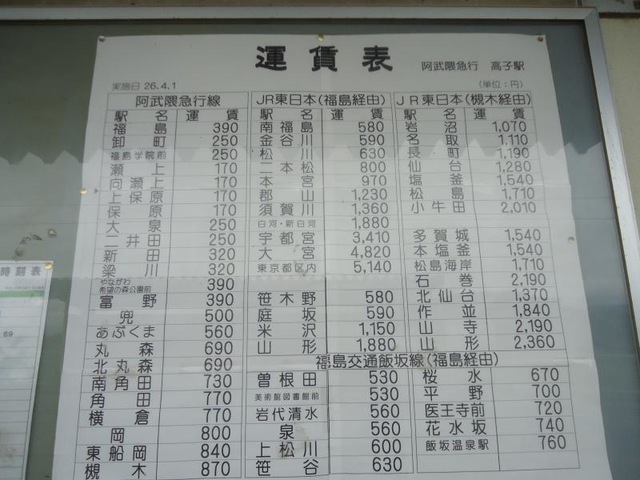 運賃表
阿武隈急行 高子駅
実施日 26.4.1
(単位:円)
阿武隈急行線
駅名 運賃
福島 390
卸町 250
福島学院前 250
瀬上 170
向瀬上 170
保原 170
上保原 170
大泉 250
二井田 250
新田 320
梁川 320
やながわ希望の森公園前 390
富野 390
兜 500
あぶくま 560
丸森 690
北丸森 690
南角田 730
角田 770
横倉 770
岡 800
東船岡 840
槻木 870
JR東日本(福島経由)
駅名 運賃
南福島 580
金谷川 590
松川 630
二本松 800
本宮 970
郡山 1,230
須賀川 1,360
白河・新白河 1,880
宇都宮 3,410
大宮 4,820
東京都区内 5,140
笹木野 580
庭坂 590
米沢 1,150
山形 1,880
JR東日本(槻木経由)
駅名 運賃
岩沼 1,070
名取 1,110
長町 1,190
仙台 1,280
塩釜 1,540
松島 1,710
小牛田 2,010
多賀城 1,540
本塩釜 1,540
松島海岸 1,710
石巻 2,190
北仙台 1,370
作並 1,840
山寺 2,190
山形 2,360
福島交通飯坂線(福島経由)
曽根田 530
美術館図書館前 530
岩代清水 560
泉 560
上松川 600
笹谷 630
桜水 670
平野 700
医王寺前 720
花水坂 740
飯坂温泉駅 760
時刻表
69